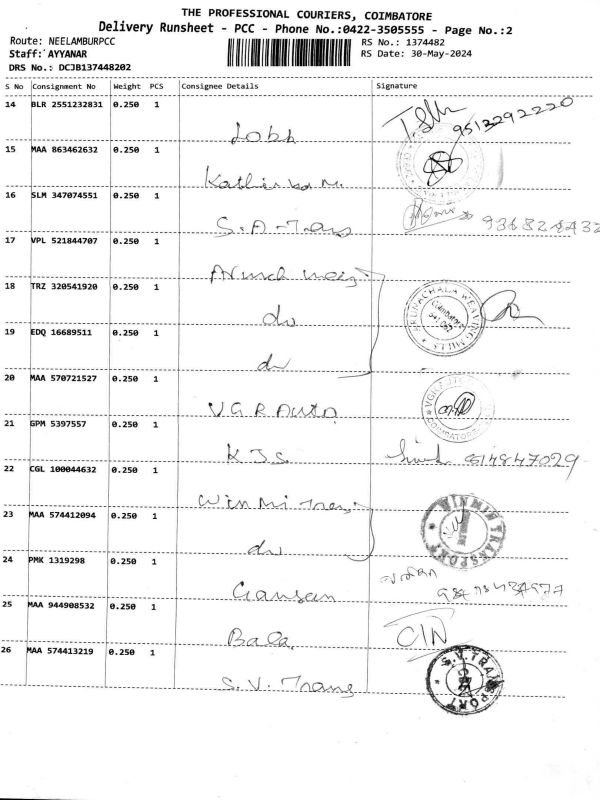 THE PROFESSIONAL COURIERS, COIMBATORE
Delivery Runsheet - PCC - Phone No.:0422-3505555 - Page No.:2
Route: NEELAMBURPCC RS No.: 1374482
Staff: AYYANAR RS Date: 30-May-2024
DRS No.: DCJB137448202
S No Consignment No Weight PCS Consignee Details Signature
14 BLR 2551232831 0.250 1
9513292220
15 MAA 863462632 0.250 1
16 SLM 347074551 0.250 1
S.A-Trans
17 VPL 521844707 0.250 1
18 TRZ 320541920 0.250 1
do
ARUNACHALA WEAVING MILLS
Coimbatore
641 062
19 EDQ 16689511 0.250 1
do
20 MAA 570721527 0.250 1
V G R Auto
COIMBATORE
21 GPM 5397557 0.250 1
K J S
22 CGL 100044632 0.250 1
Win Min Trans
23 MAA 574412094 0.250 1
do
WINMIN TRANSPORT
24 PMK 1319298 0.250 1
Gansan
25 MAA 944908532 0.250 1
Bala
26 MAA 574413219 0.250 1
S.V. Trans
S.V. TRANSPORT
CBE